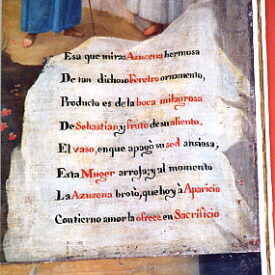 Esa que miras Azuzena hermosa
De tan dichoso Feretro ornamento,
Producto es de la boca milagrosa
De Sebastian, y fruto de su aliento,
El vaso, en que apagò su sed ansiosa,
Esta Muger arroja; y al momento
La Azuzena brotò, que hoy à Aparicio
Con tierno amor la ofrece en Sacrificio